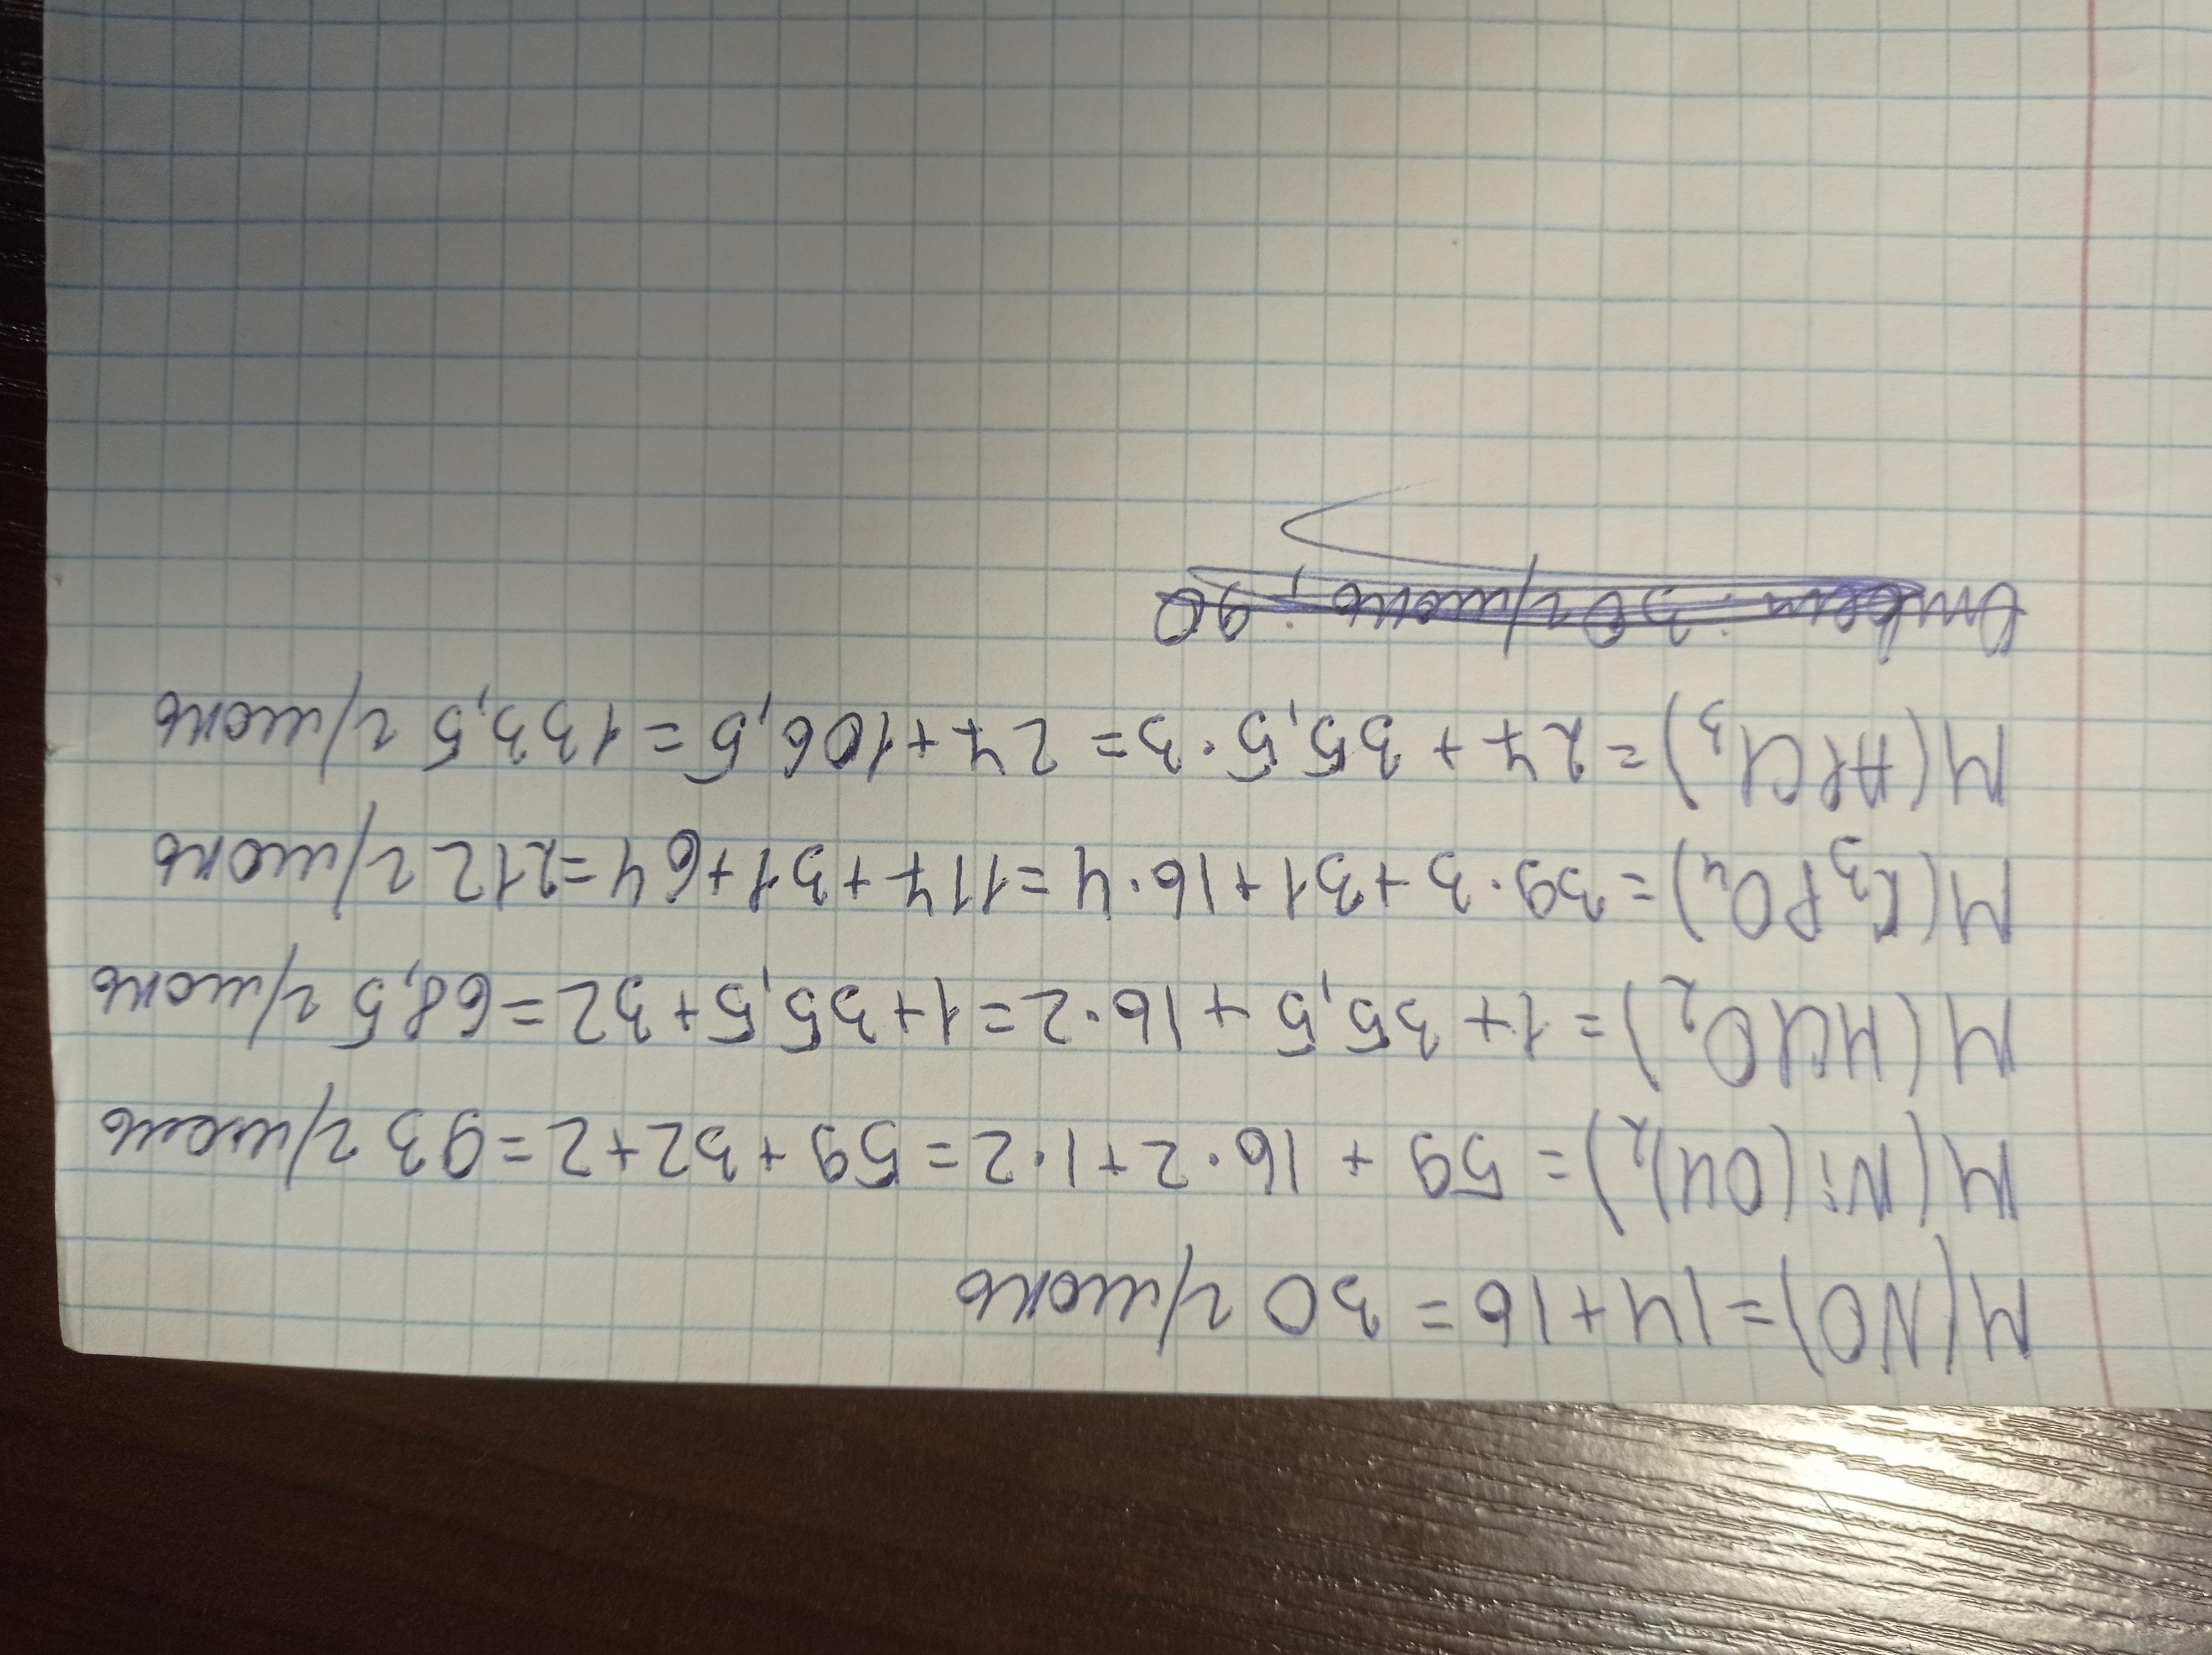 M(NO)=14+16=30 г/моль
M(Ni(OH)₂)=59+16·2+1·2=59+32+2=93 г/моль
M(HClO₂)=1+35,5+16·2=1+35,5+32=68,5 г/моль
M(K₃PO₄)=39·3+31+16·4=117+31+64=212 г/моль
M(AlCl₃)=27+35,5·3=27+106,5=133,5 г/моль
Ответ: 30 г/моль; 90